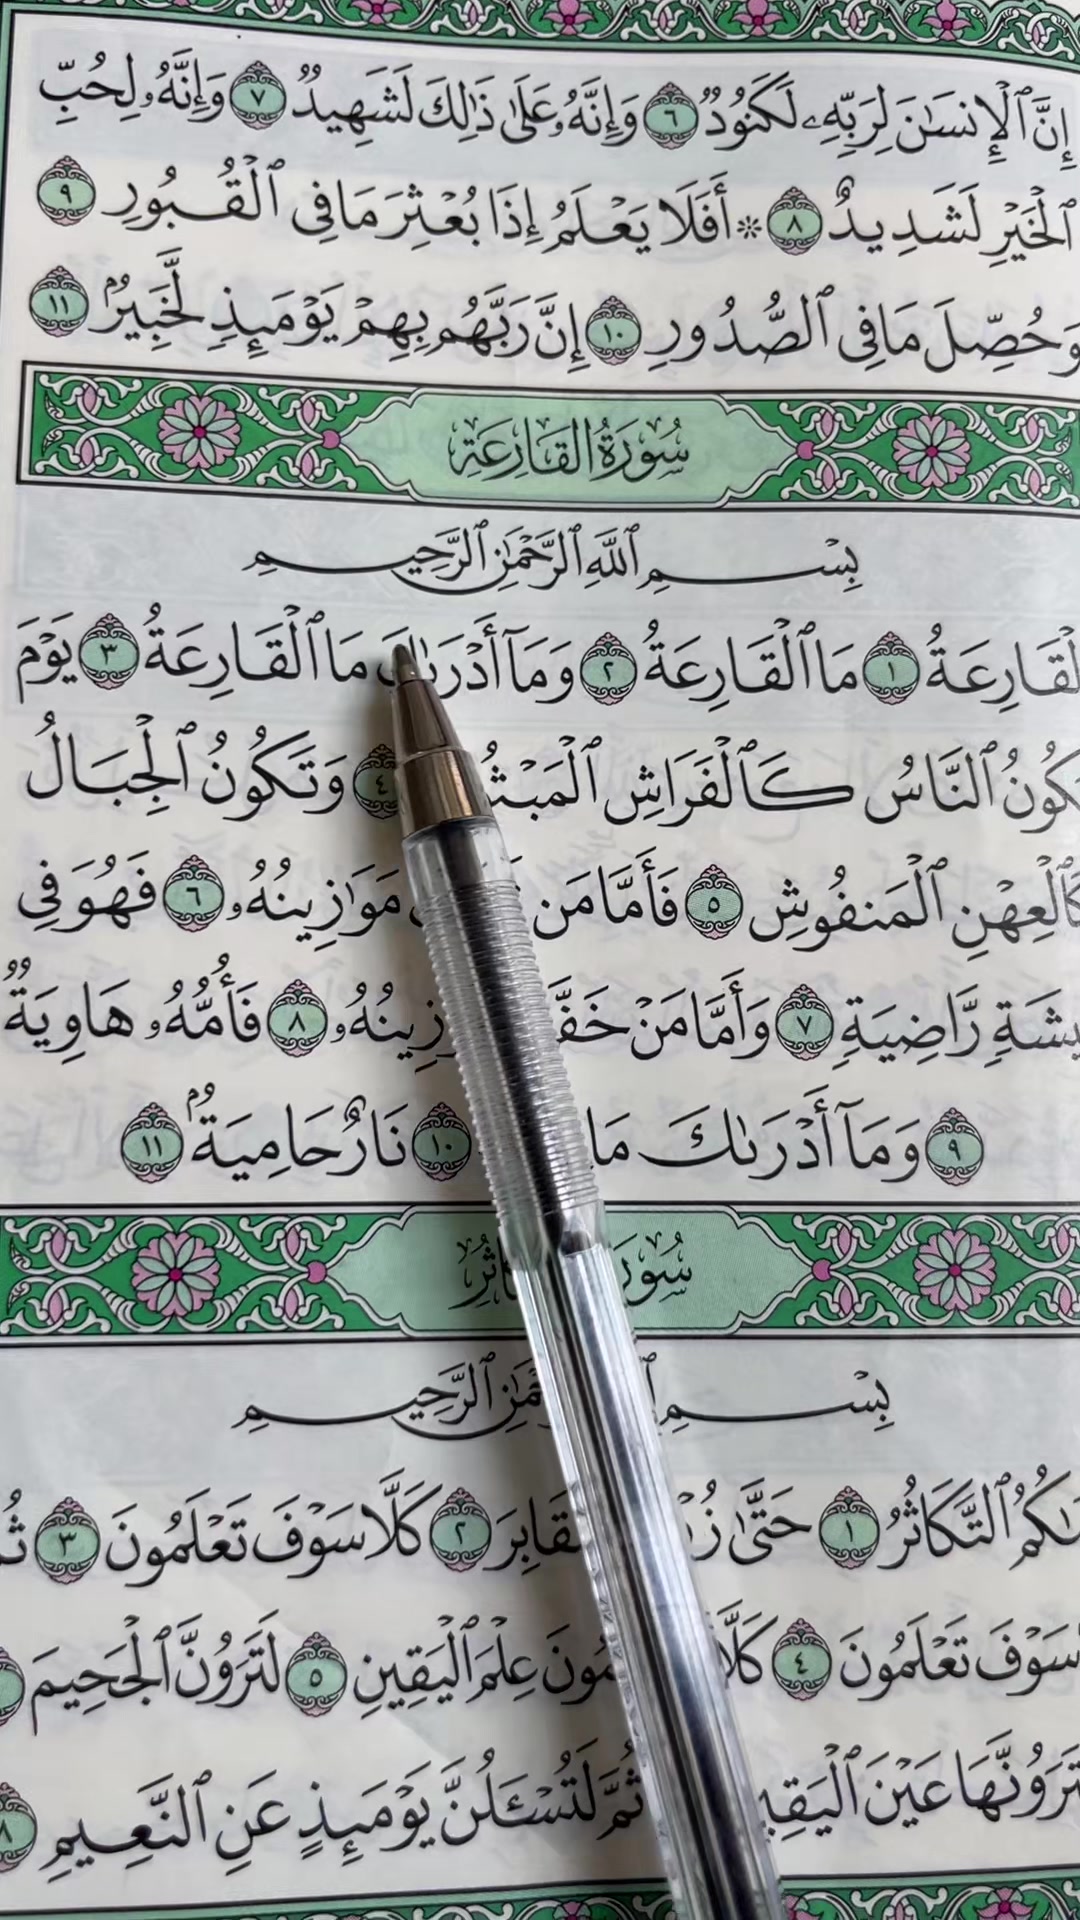 إِنَّ ٱلْإِنسَٰنَ لِرَبِّهِۦ لَكَنُودٌ ٦ وَإِنَّهُۥ عَلَىٰ ذَٰلِكَ لَشَهِيدٌ ٧ وَإِنَّهُۥ لِحُبِّ
ٱلْخَيْرِ لَشَدِيدٌ ٨ ۞ أَفَلَا يَعْلَمُ إِذَا بُعْثِرَ مَا فِى ٱلْقُبُورِ ٩
وَحُصِّلَ مَا فِى ٱلصُّدُورِ ١٠ إِنَّ رَبَّهُم بِهِمْ يَوْمَئِذٍ لَّخَبِيرٌۢ ١١
سُورَةُ القَارِعَةِ
بِسْمِ ٱللَّهِ ٱلرَّحْمَٰنِ ٱلرَّحِيمِ
لْقَارِعَةُ ١ مَا ٱلْقَارِعَةُ ٢ وَمَآ أَدْرَىٰكَ مَا ٱلْقَارِعَةُ ٣ يَوْمَ
كُونُ ٱلنَّاسُ كَٱلْفَرَاشِ ٱلْمَبْثُ ٤ وَتَكُونُ ٱلْجِبَالُ
كَٱلْعِهْنِ ٱلْمَنفُوشِ ٥ فَأَمَّا مَن مَوَٰزِينُهُۥ ٦ فَهُوَ فِى
يشَةٍ رَّاضِيَةٍ ٧ وَأَمَّا مَنْ خَفَّ زِينُهُۥ ٨ فَأُمُّهُۥ هَاوِيَةٌ
٩ وَمَآ أَدْرَىٰكَ مَا ١٠ نَارٌ حَامِيَةٌۢ ١١
سُور اثُرِ
بِسْمِ مَٰنِ ٱلرَّحِيمِ
ىٰكُمُ ٱلتَّكَاثُرُ ١ حَتَّىٰ زُ مَقَابِرَ ٢ كَلَّا سَوْفَ تَعْلَمُونَ ٣ ثُ
سَوْفَ تَعْلَمُونَ ٤ كَلَّا مُونَ عِلْمَ ٱلْيَقِينِ ٥ لَتَرَوُنَّ ٱلْجَحِيمَ
تَرَوُنَّهَا عَيْنَ ٱلْيَقِي ثُمَّ لَتُسْـَٔلُنَّ يَوْمَئِذٍ عَنِ ٱلنَّعِيمِ ٨